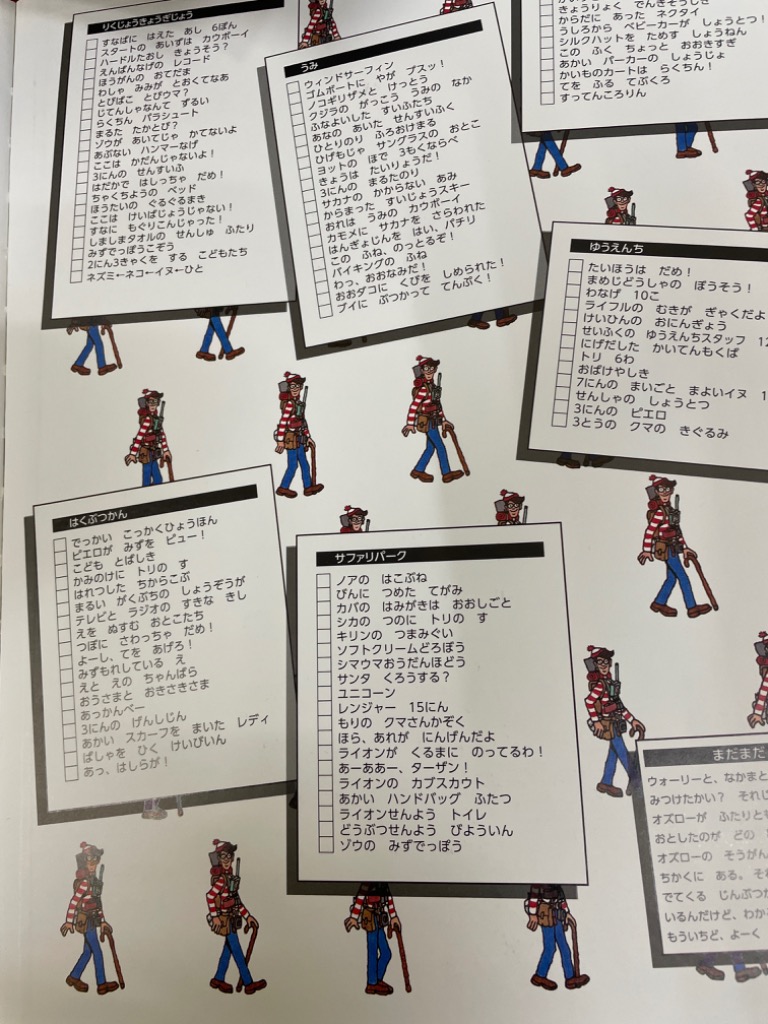 りくじょうきょうぎじょう
すなばに はえた あし 6ぽん
スタートの あいずは カウボーイ
ハードルたおし きょうそう？
えんばんなげの レコード
ほうがんの おてだま
わしゃ みみが とおくてなあ
とびばこ とびウマ？
じてんしゃなんて ずるい
らくちん パラシュート
まるた たかとび？
ゾウが あいてじゃ かてないよ
あぶない ハンマーなげ
ここは かだんじゃないよ！
3にんの せんすいふ
はだかで はしっちゃ だめ！
ちゃくちようの ベッド
ほうたいの ぐるぐるまき
ここは けいばじょうじゃない！
すなに もぐりこんじゃった！
しましまタオルの せんしゅ ふたり
みずでっぽうこぞう
2にん3きゃくを する こどもたち
ネズミ←ネコ←イヌ←ひと
うみ
ウィンドサーフィン
ゴムボートに やが プスッ！
ノコギリザメと けっとう
クジラの がっこう うみの なか
ふなよいした すいふたち
あなの あいた せんすいふく
ひとりのり ふろおけまる
ひげもじゃ サングラスの おとこ
ヨットの ほで 3もくならべ
きょうは たいりょうだ！
3にんの まるたのり
サカナの かからない あみ
からまった すいじょうスキー
おれは うみの カウボーイ
カモメに サカナを さらわれた
はんぎょじんを はい、パチリ
この ふね、のっとるぞ！
バイキングの ふね
わっ、おおなみだ！
おおダコに くびを しめられた！
ブイに ぶつかって てんぷく！
きょうりょく でんきそうじき
からだに あった ネクタイ
うしろから ベビーカーが しょうとつ！
シルクハットを ためす しょうねん
この ふく ちょっと おおきすぎ
あかい パーカーの しょうじょ
かいものカートは らくちん！
てを ふる てぶくろ
すってんころりん
ゆうえんち
たいほうは だめ！
まめじどうしゃの ぼうそう！
わなげ 10こ
ライフルの むきが ぎゃくだよ
けいひんの おにんぎょう
せいふくの ゆうえんちスタッフ 12
にげだした かいてんもくば
トリ 6わ
おばけやしき
7にんの まいごと まよいイヌ 1
せんしゃの しょうとつ
3にんの ピエロ
3とうの クマの きぐるみ
はくぶつかん
でっかい こっかくひょうほん
ピエロが みずを ピュー！
こども とばしき
かみのけに トリの す
はれつした ちからこぶ
まるい がくぶちの しょうぞうが
テレビと ラジオの すきな きし
えを ぬすむ おとこたち
つぼに さわっちゃ だめ！
よーし、てを あげろ！
みずもれしている え
えと えの ちゃんばら
おうさまと おきさきさま
あっかんベー
3にんの げんしじん
あかい スカーフを まいた レディ
ばしゃを ひく けいびいん
あっ、はしらが！
サファリパーク
ノアの はこぶね
びんに つめた てがみ
カバの はみがきは おおしごと
シカの つのに トリの す
キリンの つまみぐい
ソフトクリームどろぼう
シマウマおうだんほどう
サンタ くろうする？
ユニコーン
レンジャー 15にん
もりの クマさんかぞく
ほら、あれが にんげんだよ
ライオンが くるまに のってるわ！
あーああー、ターザン！
ライオンの カブスカウト
あかい ハンドバッグ ふたつ
ライオンせんよう トイレ
どうぶつせんよう びよういん
ゾウの みずでっぽう
まだまだ
ウォーリーと、なかまと
みつけたかい？ それじ
オズローが ふたりとも
おとしたのが どの
オズローの そうがん
ちかくに ある。それ
でてくる じんぶつが
いるんだけど、わかる
もういちど、よーく